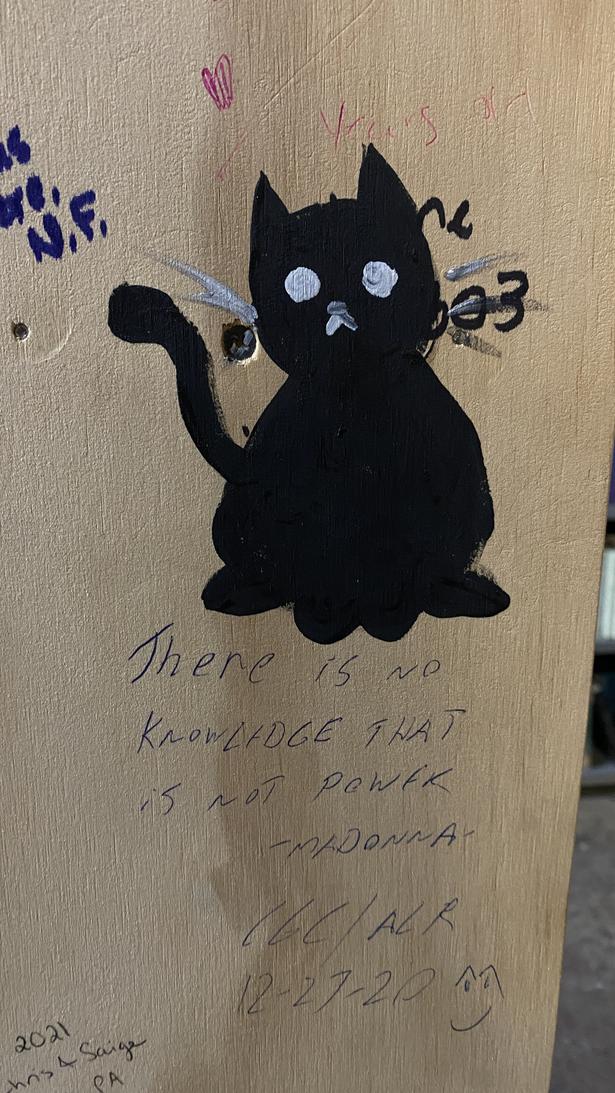 Years on
N.F.
There is no
KNOWLEDGE THAT
is NOT POWER
-MADONNA-
12-27-20
2021
Chris & Saige
PA